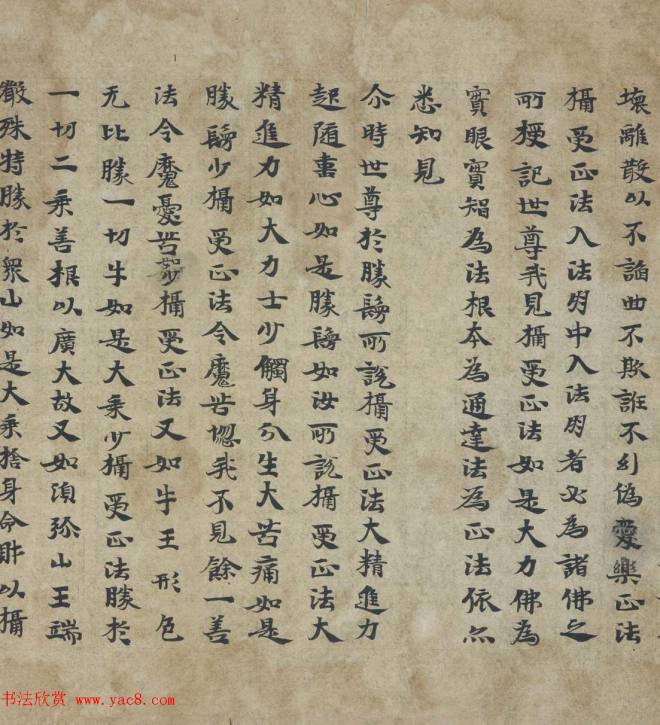 壞離散以不諂曲不欺誑不幻偽愛樂正法
攝受正法入法朋中入法朋者必為諸佛之
所授記世尊我見攝受正法如是大力佛為
實眼實智為法根本為通達法為正法依亦
悉知見
尒時世尊於勝鬘所說攝受正法大精進力
起隨喜心如是勝鬘如汝所說攝受正法大
精進力如大力士少觸身分生大苦痛如是
勝鬘少攝受正法令魔苦惚我不見餘一善
法令魔憂苦如少攝受正法又如牛王形色
无比勝一切牛如是大乘少攝受正法勝於
一切二乘善根以廣大故又如湏弥山王端
嚴殊特勝於衆山如是大乘捨身命財以攝
书法欣赏 www.yac8.com